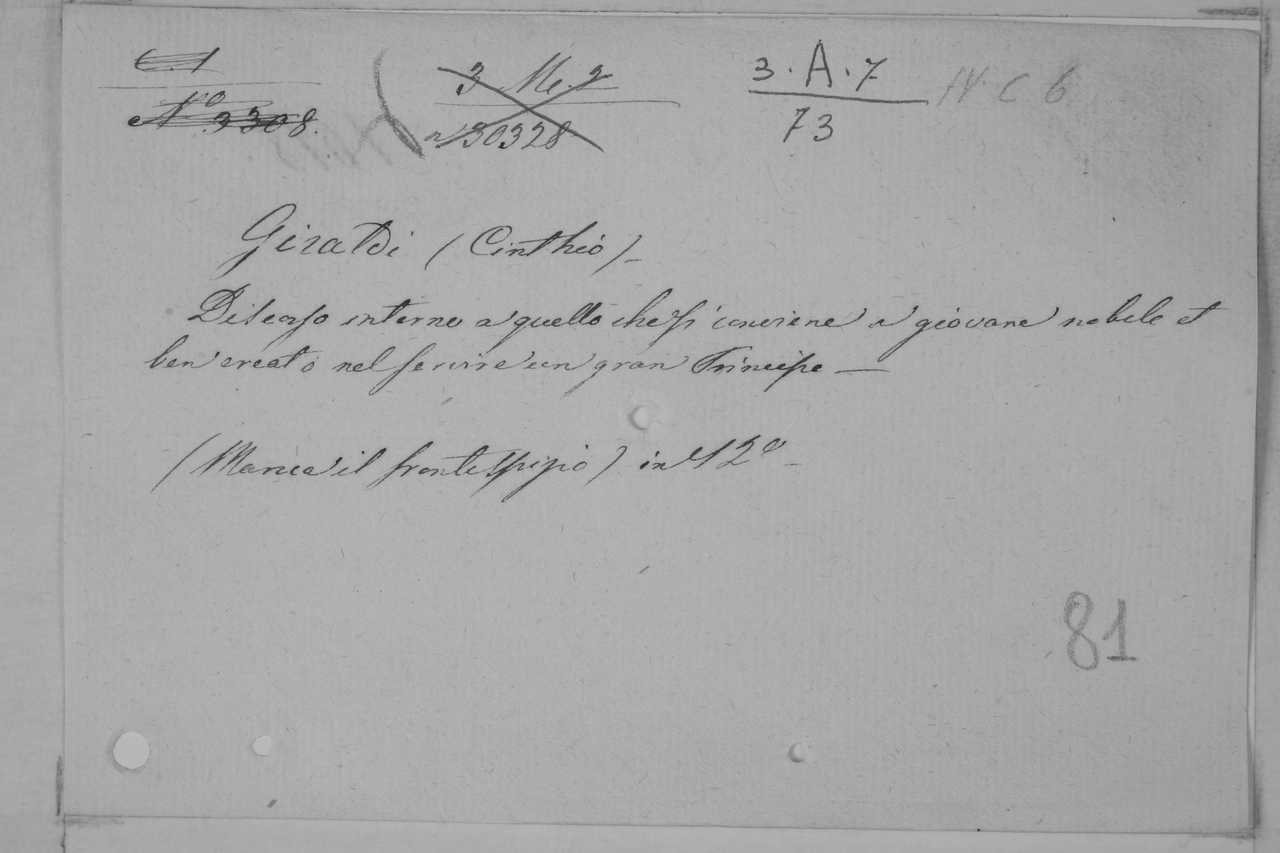 C. 1
N.º 3308.
3 Me. 2
nº 30328
3. A. 7
73
IV C 6
Giraldi (Cinthio)_
Discorso intorno a quello che si conviene a giovane nobile et
ben creato nel servire un gran Principe —
(Manca il frontespizio) in 12º _
81